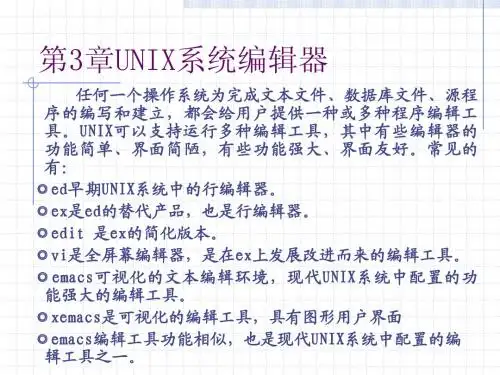 第3章UNIX系统编辑器
任何一个操作系统为完成文本文件、数据库文件、源程
序的编写和建立，都会给用户提供一种或多种程序编辑工
具。UNIX可以支持运行多种编辑工具，其中有些编辑器的
功能简单、界面简陋，有些功能强大、界面友好。常见的
有：
◎ed早期UNIX系统中的行编辑器。
◎ex是ed的替代产品，也是行编辑器。
◎edit 是ex的简化版本。
◎vi是全屏幕编辑器，是在ex上发展改进而来的编辑工具。
◎emacs可视化的文本编辑环境，现代UNIX系统中配置的功
能强大的编辑工具。
◎xemacs是可视化的编辑工具，具有图形用户界面
◎emacs编辑工具功能相似，也是现代UNIX系统中配置的编
辑工具之一。